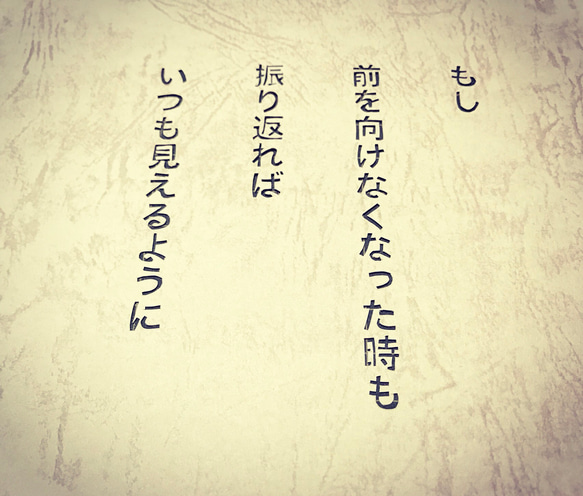 もし
前を向けなくなった時も
振り返れば
いつも見えるように